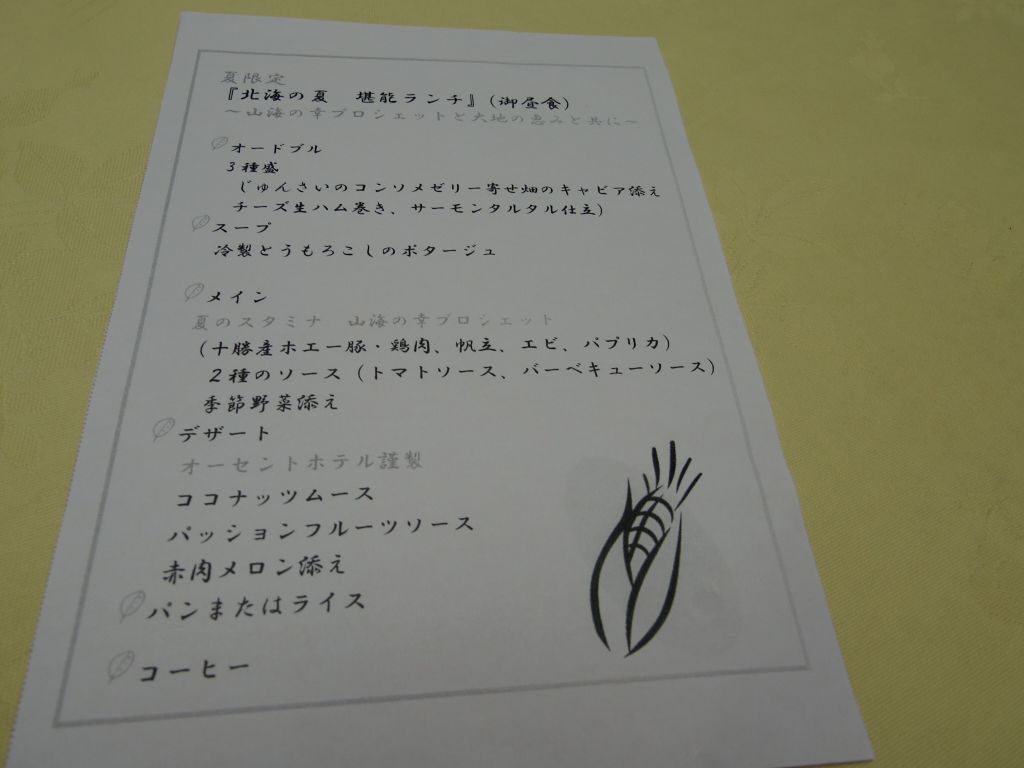 夏限定
『北海の夏　堪能ランチ』(御昼食)
～山海の幸ブロシェットと大地の恵みと共に～
オードブル
3種盛
じゅんさいのコンソメゼリー寄せ畑のキャビア添え
チーズ生ハム巻き、サーモンタルタル仕立)
スープ
冷製とうもろこしのポタージュ
メイン
夏のスタミナ　山海の幸ブロシェット
(十勝産ホエー豚・鶏肉、帆立、エビ、パプリカ)
2種のソース (トマトソース、バーベキューソース)
季節野菜添え
デザート
オーセントホテル謹製
ココナッツムース
パッションフルーツソース
赤肉メロン添え
パンまたはライス
コーヒー